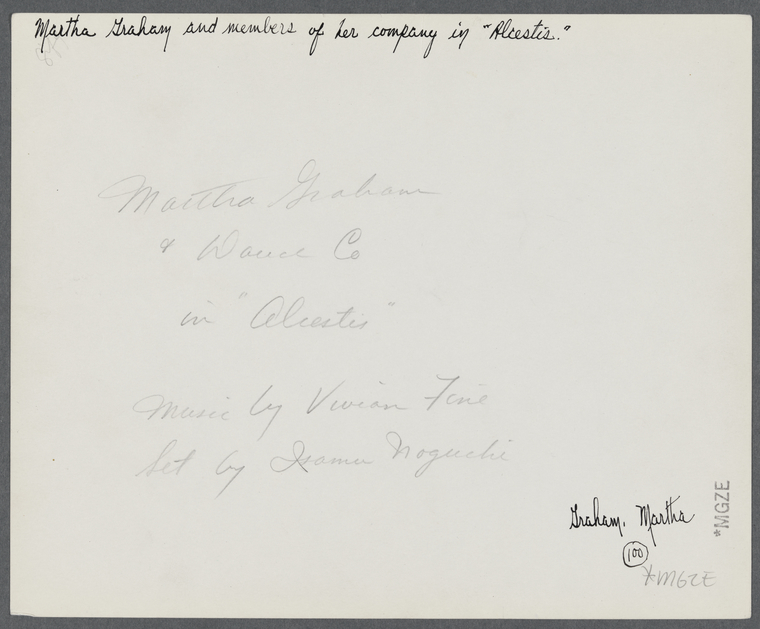 Martha Graham and members of her company in "Alcestis."
Martha Graham
& Dance Co
in "Alcestis"
Music by Vivian Fine
Set by Isamu Noguchi
Graham, Martha
100
*MGZE
*MGZE